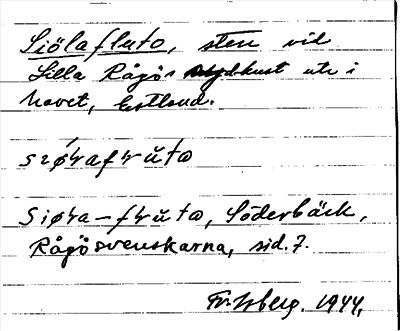 Siölafluto, sten vid
Lilla Rågö's sydkust ute i
havet, Estland.
Siøɫa-fɫŭto, Söderbäck,
Rågösvenskarna, sid. 7.
Fr. Isberg. 1944.